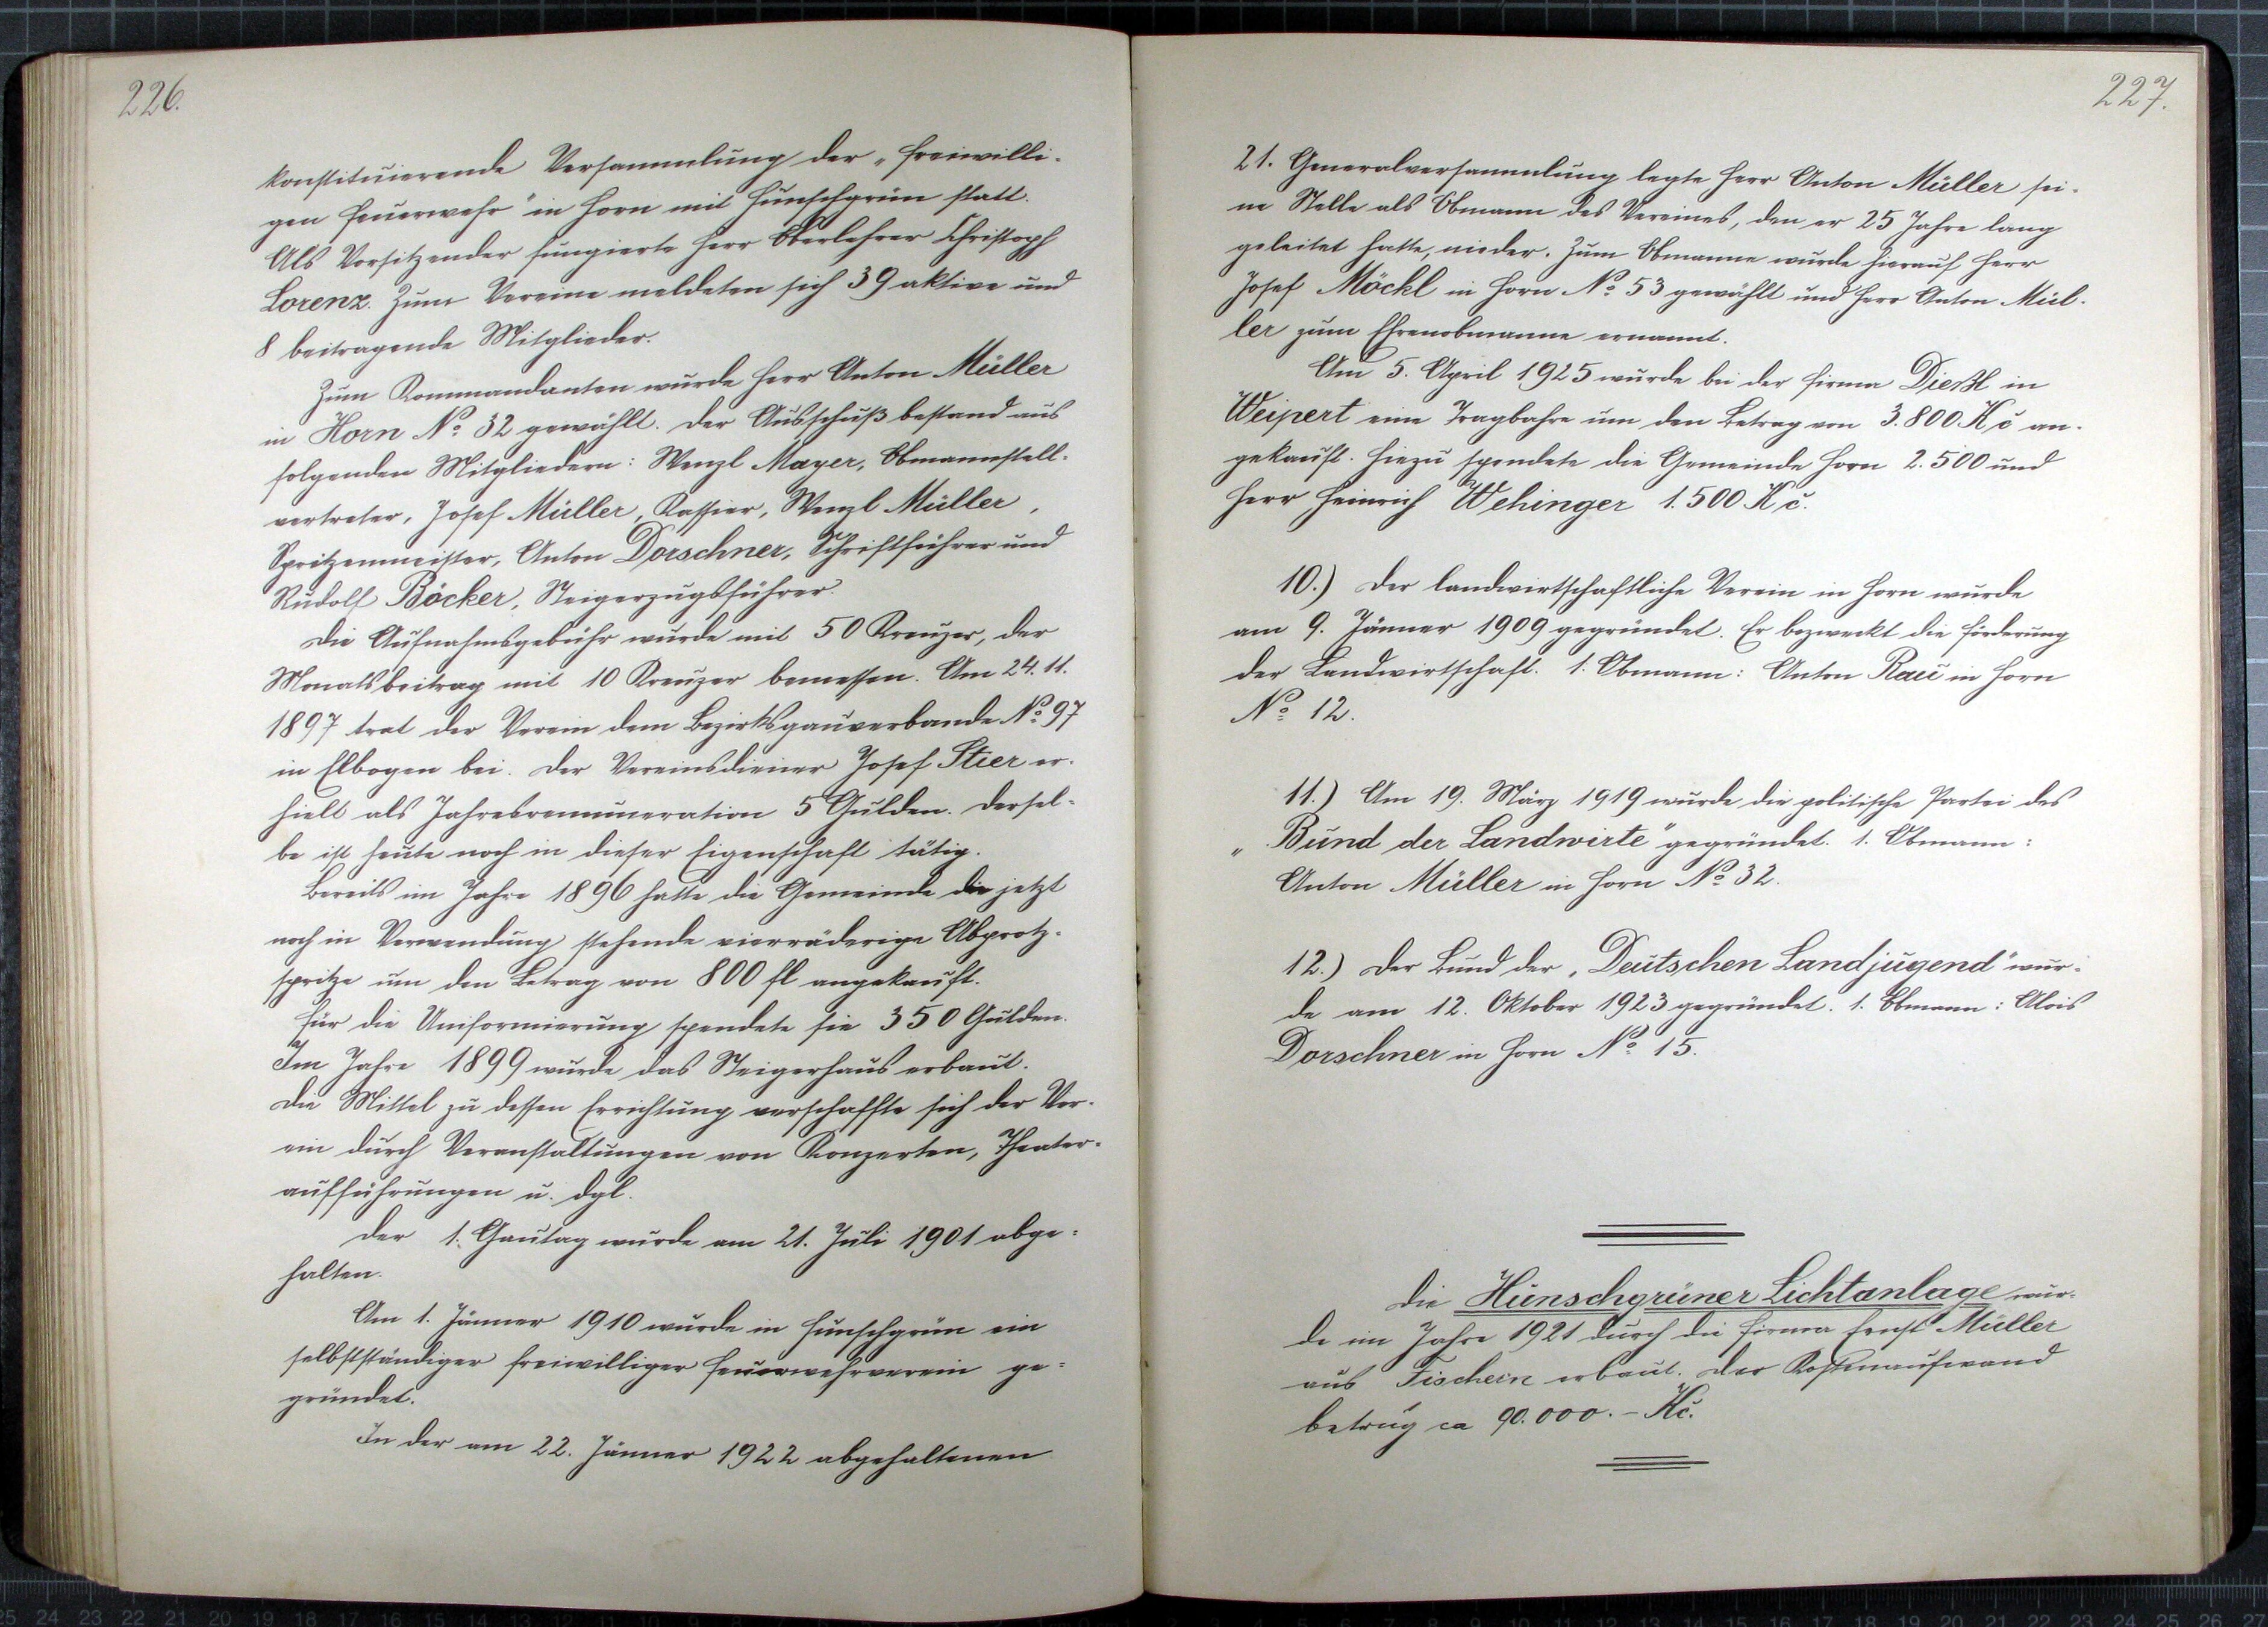 226.
konstituierende Versammlung der „freiwilli-
gen Feuerwehr" in Horn mit Hunschgrün statt.
Als Vorsitzender fungierte Herr Oberlehrer Christoph
Lorenz. Zum Vereine meldeten sich 39 aktive und
8 beitragende Mitglieder.
Zum Kommandanten wurde Herr Anton Müller
in Horn No 32 gewählt. Der Ausschuß bestand aus
folgenden Mitgliedern: Wenzl Mayer, Obmannstell-
vertreter, Josef Müller, Kassier, Wenzl Müller,
Spritzenmeister, Anton Dorschner, Schriftführer und
Rudolf Böcker, Steigerzugsführer.
Die Aufnahmsgebühr wurde mit 50 Kreuzer, der
Monatsbeitrag mit 10 Kreuzer bemessen. Am 24.11.
1897 trat der Verein dem Bezirksgauverbande No 97
in Elbogen bei. Der Vereinsdiener Josef Stier er-
hielt als Jahresremuneration 5 Gulden. Dersel-
be ist heute noch in dieser Eigenschaft tätig.
Bereits im Jahre 1896 hatte die Gemeinde die jetzt
noch in Verwendung stehende vierräderige Abprotz-
spritze um den Betrag von 800 fl angekauft.
Für die Uniformierung spendete sie 350 Gulden.
Im Jahre 1899 wurde das Steigerhaus erbaut.
Die Mittel zu dessen Errichtung verschaffte sich der Ver-
ein durch Veranstaltungen von Konzerten, Theater-
aufführungen u. dgl.
Der 1. Gautag wurde am 21. Juli 1901 abge-
halten.
Am 1. Jänner 1910 wurde in Hunschgrün ein
selbstständiger freiwilliger Feuerwehrverein ge-
gründet.
In der am 22. Jänner 1922 abgehaltenen
227.
21. Generalversammlung legte Herr Anton Müller sei-
ne Stelle als Obmann des Vereines, den er 25 Jahre lang
geleitet hatte, nieder. Zum Obmanne wurde hierauf Herr
Josef Möckl in Horn No 53 gewählt und Herr Anton Mül-
ler zum Ehrenobmanne ernannt.
Am 5. April 1925 wurde bei der Firma Dießl in
Weipert eine Tragbahre um den Betrag von 3.800 Kč an-
gekauft. Hiezu spendete die Gemeinde Horn 2.500 und
Herr Heinrich Wehinger 1.500 Kč.
10.) Der landwirtschaftliche Verein in Horn wurde
am 9. Jänner 1909 gegründet. Er bezweckt die Förderung
der Landwirtschaft. 1. Obmann: Anton Rau in Horn
No 12.
11.) Am 19. März 1919 wurde die politische Partei des
„Bund der Landwirte" gegründet. 1. Obmann:
Anton Müller in Horn No 32.
12.) Der Bund der „Deutschen Landjugend" wur-
de am 12. Oktober 1923 gegründet. 1. Obmann: Alois
Dorschner in Horn No 15.
Die Hunschgrüner Lichtanlage wur-
de im Jahre 1921 durch die Firma Ernst Müller
aus Fischern erbaut. Der Kostenaufwand
betrug ca 90.000.- Kč.
25 24 23 22 21 20 19 18 17 16 15 14 13 12 11 10 9 8 7 6 5 4 3 2 1 1 2 3 4 5 6 7 8 9 10 11 12 13 14 15 16 17 18 19 20 21 22 23 24 25 26 27